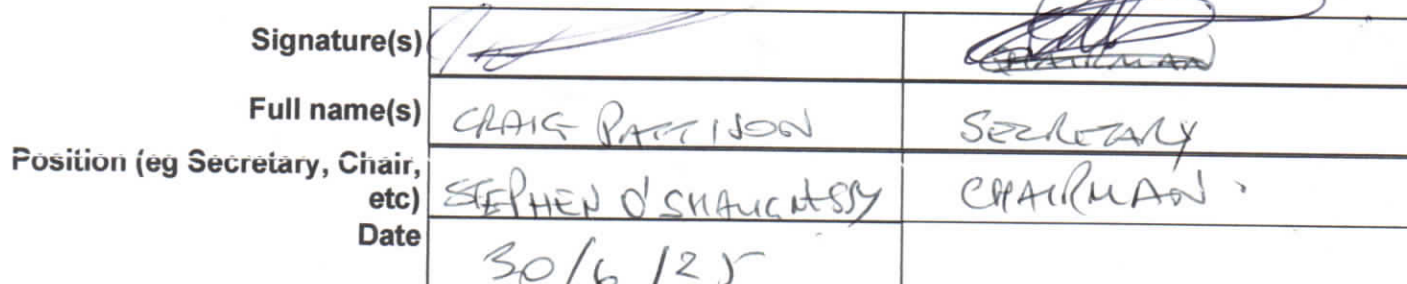 Signature(s) CHAIRMAN
Full name(s) CRAIG PATTISON SECRETARY
Position (eg Secretary, Chair,
etc) STEPHEN O'SHAUGNESSY CHAIRMAN.
Date 30/6/25